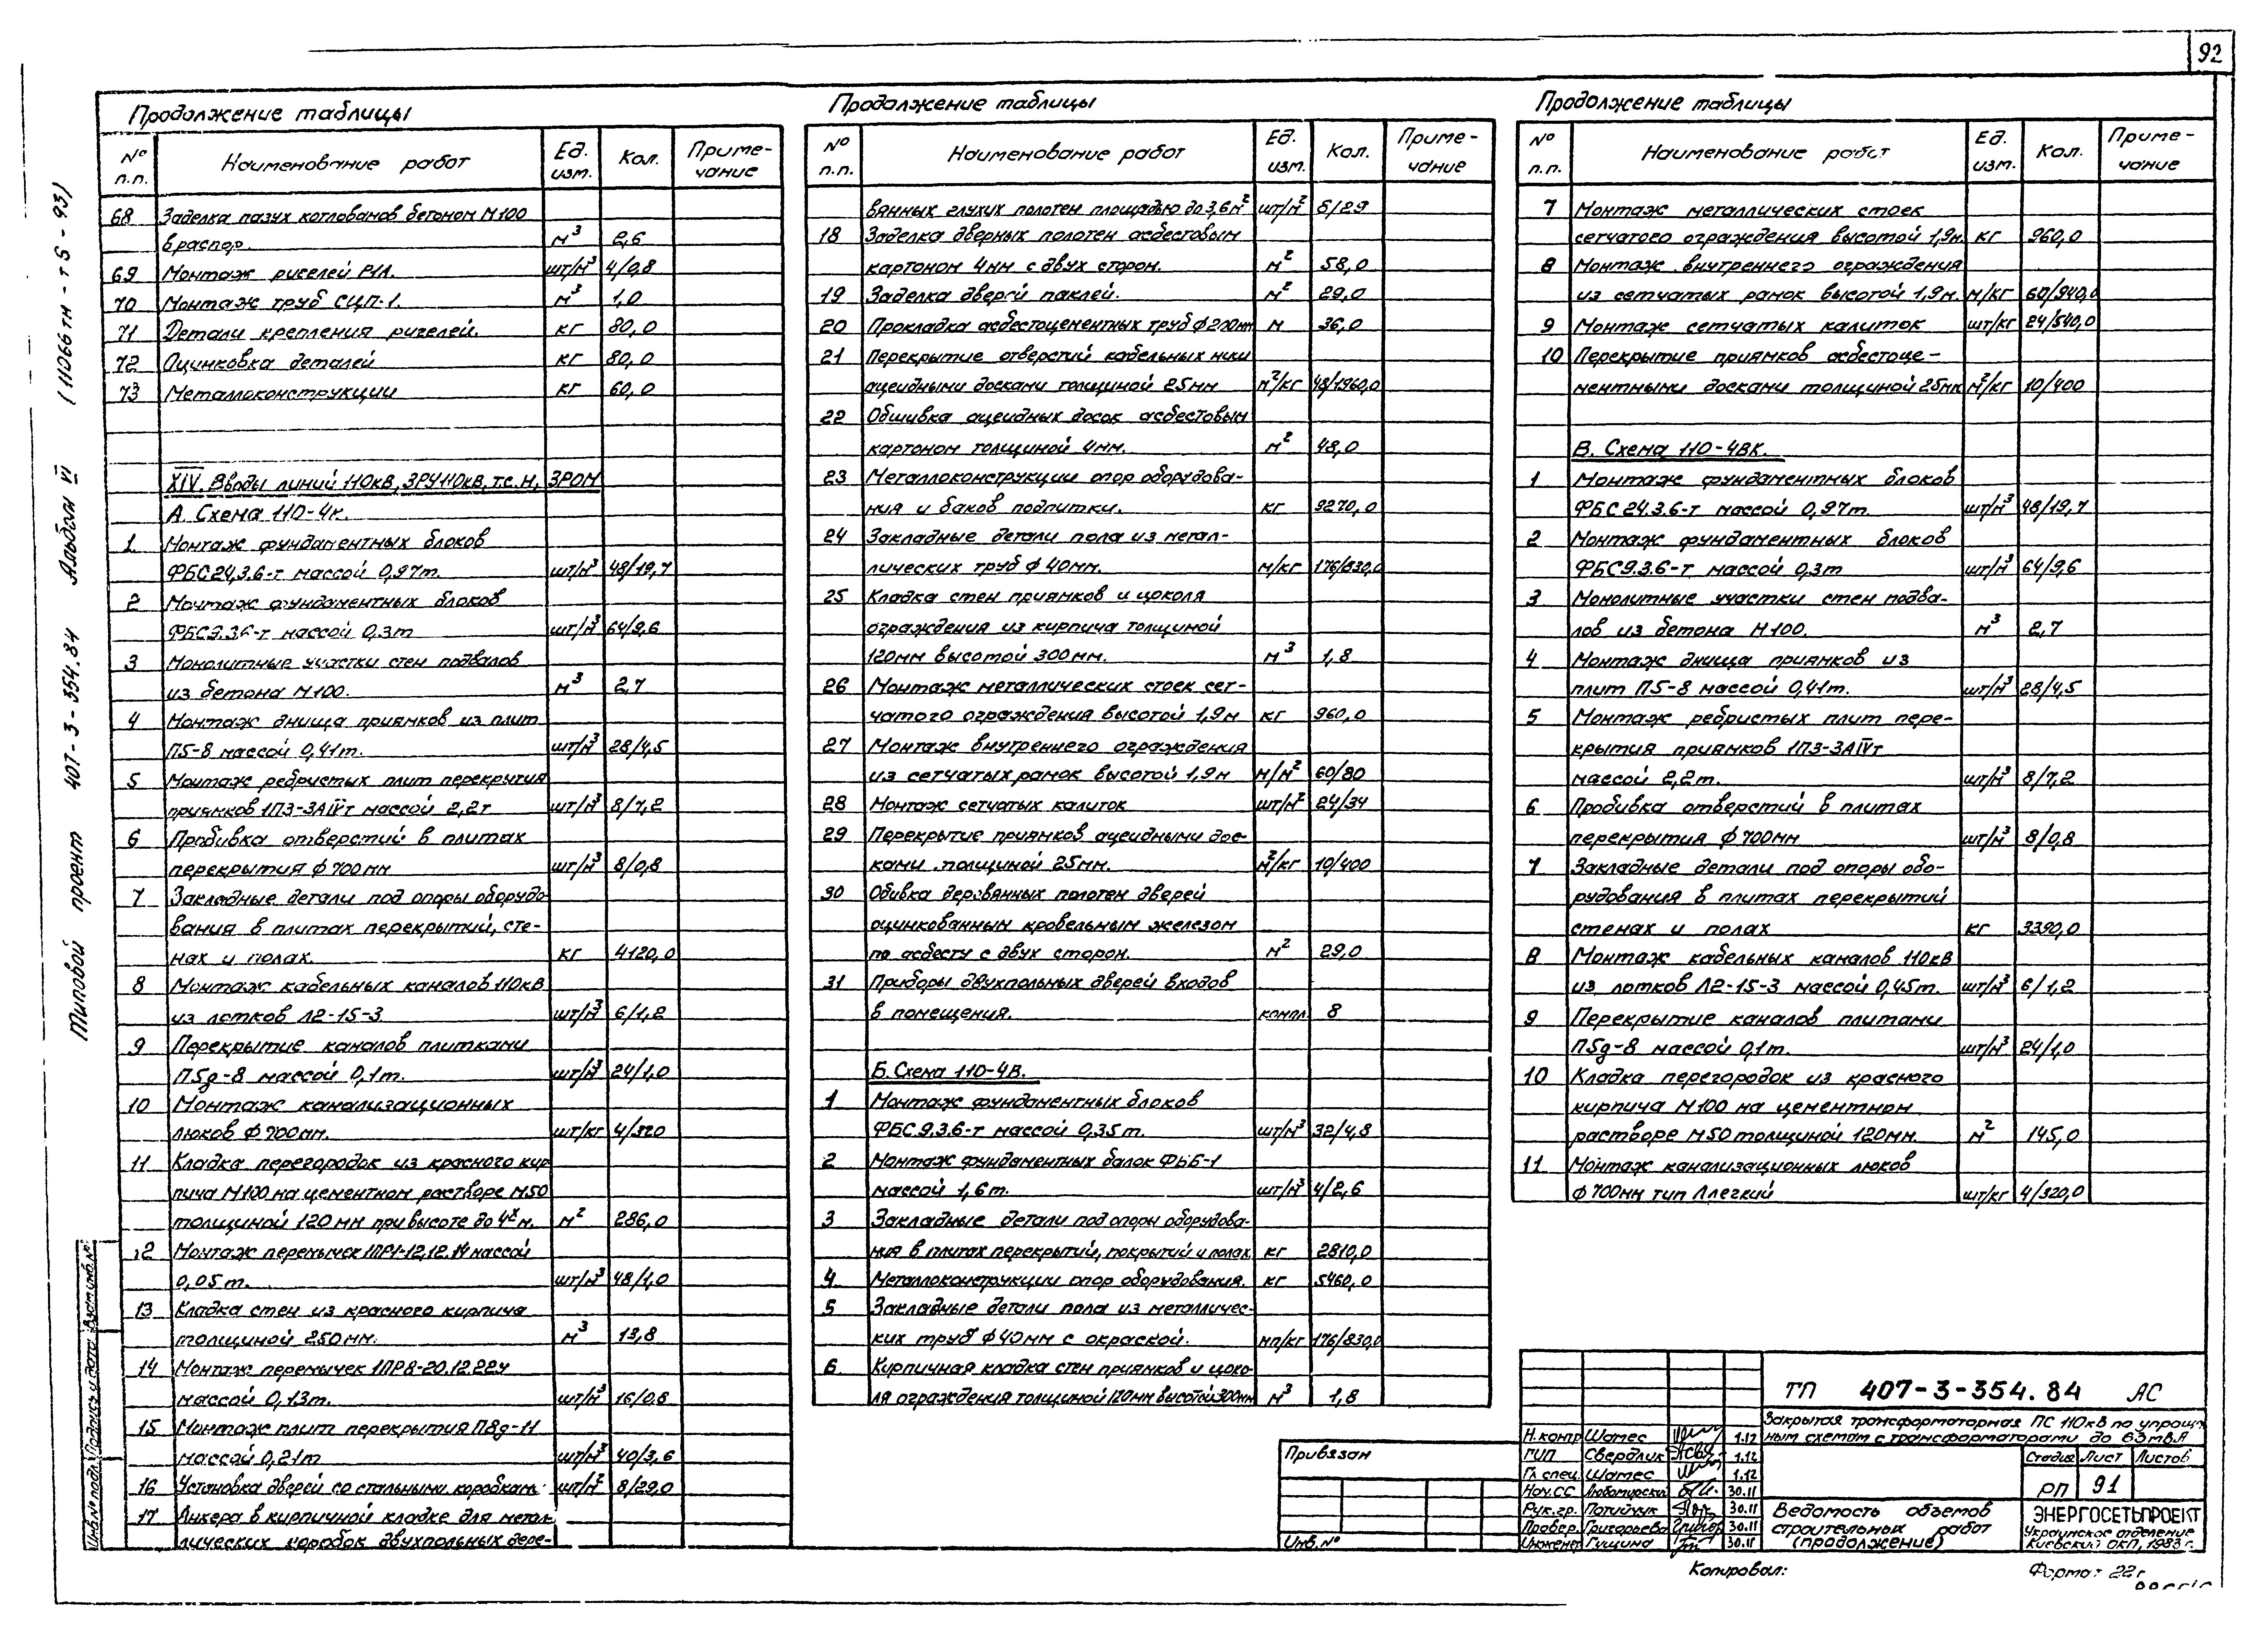 92
Типовой проект 407-3-354.84 Альбом VI (11066тм-т5-93)
Продолжение таблицы
№ п.п. Наименование работ Ед. изм. Кол. Приме-чание
68 Заделка пазух котлованов бетоном М100
враспор. м³ 2,6
69 Монтаж ригелей Р1Л. шт/м³ 4/0,8
70 Монтаж труб СЦП-1. м³ 1,0
71 Детали крепления ригелей. кг 80,0
72 Оцинковка деталей кг 80,0
73 Металлоконструкции кг 60,0
XIV. Вводы линий 110кВ, ЗРУ110кВ, т.с.н, ЗРОМ
А. Схема 110-4к.
1 Монтаж фундаментных блоков
ФБС24.3.6-т массой 0,97т. шт/м³ 48/19,7
2 Монтаж фундаментных блоков
ФБС9.3.6-т массой 0,3т шт/м³ 64/9,6
3 Монолитные участки стен подвалов
из бетона М100. м³ 2,7
4 Монтаж днища приямков из плит
П5-8 массой 0,41т. шт/м³ 28/4,5
5 Монтаж ребристых плит перекрытия
приямков 1П3-3АIVт массой 2,2т шт/м³ 8/7,2
6 Пробивка отверстий в плитах
перекрытия ф700мм шт/м³ 8/0,8
7 Закладные детали под опоры оборудо-
вания в плитах перекрытий, сте-
нах и полах. кг 4120,0
8 Монтаж кабельных каналов 110кВ
из лотков Л2-15-3 шт/м³ 6/1,2
9 Перекрытие каналов плитками
П5д-8 массой 0,1т. шт/м³ 24/1,0
10 Монтаж канализационных
люков ф700мм. шт/кг 4/320
11 Кладка перегородок из красного кир
пича М100 на цементном растворе М50
толщиной 120мм при высоте до 4х м. м² 286,0
12 Монтаж перемычек 1ПР1-12.12.14 массой
0,05т. шт/м³ 48/1,0
13 Кладка стен из красного кирпича
толщиной 250мм. м³ 13,8
14 Монтаж перемычек 1ПР8-20.12.22у
массой 0,13т. шт/м³ 16/0,8
15 Монтаж плит перекрытия П8д-11
массой 0,21т шт/м³ 40/3,6
16 Установка дверей со стальными коробкам. шт/м² 8/29,0
17 Анкера в кирпичной кладке для метал-
лических коробок двухпольных дере-
Продолжение таблицы
№ п.п. Наименование работ Ед. изм. Кол. Приме-чание
вянных глухих полотен площадью до 3,6м² шт/м² 8/29
18 Заделка дверных полотен асбестовым
картоном 4мм с двух сторон. м² 58,0
19 Заделка дверей паклей. м² 29,0
20 Прокладка асбестоцементных труб ф200мм м 36,0
21 Перекрытие отверстий кабельных ниш
ацеидными досками толщиной 25мм м²/кг 48/1960,0
22 Обшивка ацеидных досок асбестовым
картоном толщиной 4мм. м² 48,0
23 Металлоконструкции опор оборудова-
ния и баков подпитки. кг 9270,0
24 Закладные детали пола из метал-
лических труб ф40мм. м/кг 176/830,0
25 Кладка стен приямков и цоколя
ограждения из кирпича толщиной
120мм высотой 300мм. м³ 1,8
26 Монтаж металлических стоек сет-
чатого ограждения высотой 1,9м кг 960,0
27 Монтаж внутреннего ограждения
из сетчатых рамок высотой 1,9м м/м² 60/80
28 Монтаж сетчатых калиток шт/м² 24/34
29 Перекрытие приямков ацеидными дос-
ками толщиной 25мм. м²/кг 10/400
30 Обивка деревянных полотен дверей
оцинкованным кровельным железом
по асбесту с двух сторон. м² 29,0
31 Приборы двухпольных дверей входов
в помещения. компл 8
Б. Схема 110-4В.
1 Монтаж фундаментных блоков
ФБС.9.3.6-т массой 0,35т. шт/м³ 32/4,8
2 Монтаж фундаментных балок ФБ6-1
массой 1,6т. шт/м³ 4/2,6
3 Закладные детали под опоры оборудова-
ния в плитах перекрытий, покрытий и полах кг 2810,0
4 Металлоконструкции опор оборудования. кг 5460,0
5 Закладные детали пола из металличес-
ких труб ф40мм с окраской. мп/кг 176/830,0
6 Кирпичная кладка стен приямков и цоко-
ля ограждения толщиной 120мм высотой 300мм м³ 1,8
Продолжение таблицы
№ п.п. Наименование работ Ед. изм. Кол. Приме-чание
7 Монтаж металлических стоек
сетчатого ограждения высотой 1,9м. кг 960,0
8 Монтаж внутреннего ограждения
из сетчатых рамок высотой 1,9м. м/кг 60/940,0
9 Монтаж сетчатых калиток шт/кг 24/540,0
10 Перекрытие приямков асбестоце-
ментными досками толщиной 25мм м²/кг 10/400
В. Схема 110-4ВК.
1 Монтаж фундаментных блоков
ФБС24.3.6-т массой 0,97т. шт/м³ 48/19,7
2 Монтаж фундаментных блоков
ФБС9.3.6-т массой 0,3т шт/м³ 64/9,6
3 Монолитные участки стен подва-
лов из бетона М100. м³ 2,7
4 Монтаж днища приямков из
плит П5-8 массой 0,41т. шт/м³ 28/4,5
5 Монтаж ребристых плит пере-
крытия приямков 1П3-3АIVт
массой 2,2т. шт/м³ 8/7,2
6 Пробивка отверстий в плитах
перекрытия ф700мм шт/м³ 8/0,8
7 Закладные детали под опоры обо-
рудования в плитах перекрытий
стенах и полах кг 3390,0
8 Монтаж кабельных каналов 110кВ
из лотков Л2-15-3 массой 0,45т. шт/м³ 6/1,2
9 Перекрытие каналов плитами
П5д-8 массой 0,1т. шт/м³ 24/1,0
10 Кладка перегородок из красного
кирпича М100 на цементном
растворе М50 толщиной 120мм. м² 145,0
11 Монтаж канализационных люков
ф700мм тип Ллегкий шт/кг 4/320,0
Инв.№подл. Подпись и дата Взам.инв.№
Привязан
Инв.№
ТП 407-3-354.84 АС
Закрытая трансформаторная ПС 110кВ по упрощ
ным схемам с трансформаторами до 63мвА
Н.контр Шамес 1.12
ГИП Свердлик 1.12
Гл.спец. Шамес 1.12
Нач.СС Любомирский 30.11
Рук.гр. Потийчук 30.11
Провер. Григорьева 30.11
Инженер Гущина 30.11
Стадия Лист Листов
РП 91
Ведомость объемов
строительных работ
(продолжение)
ЭНЕРГОСЕТЬПРОЕКТ
Украинское отделение
Киевский ОКП, 1983г.
Копировал:
Формат 22г